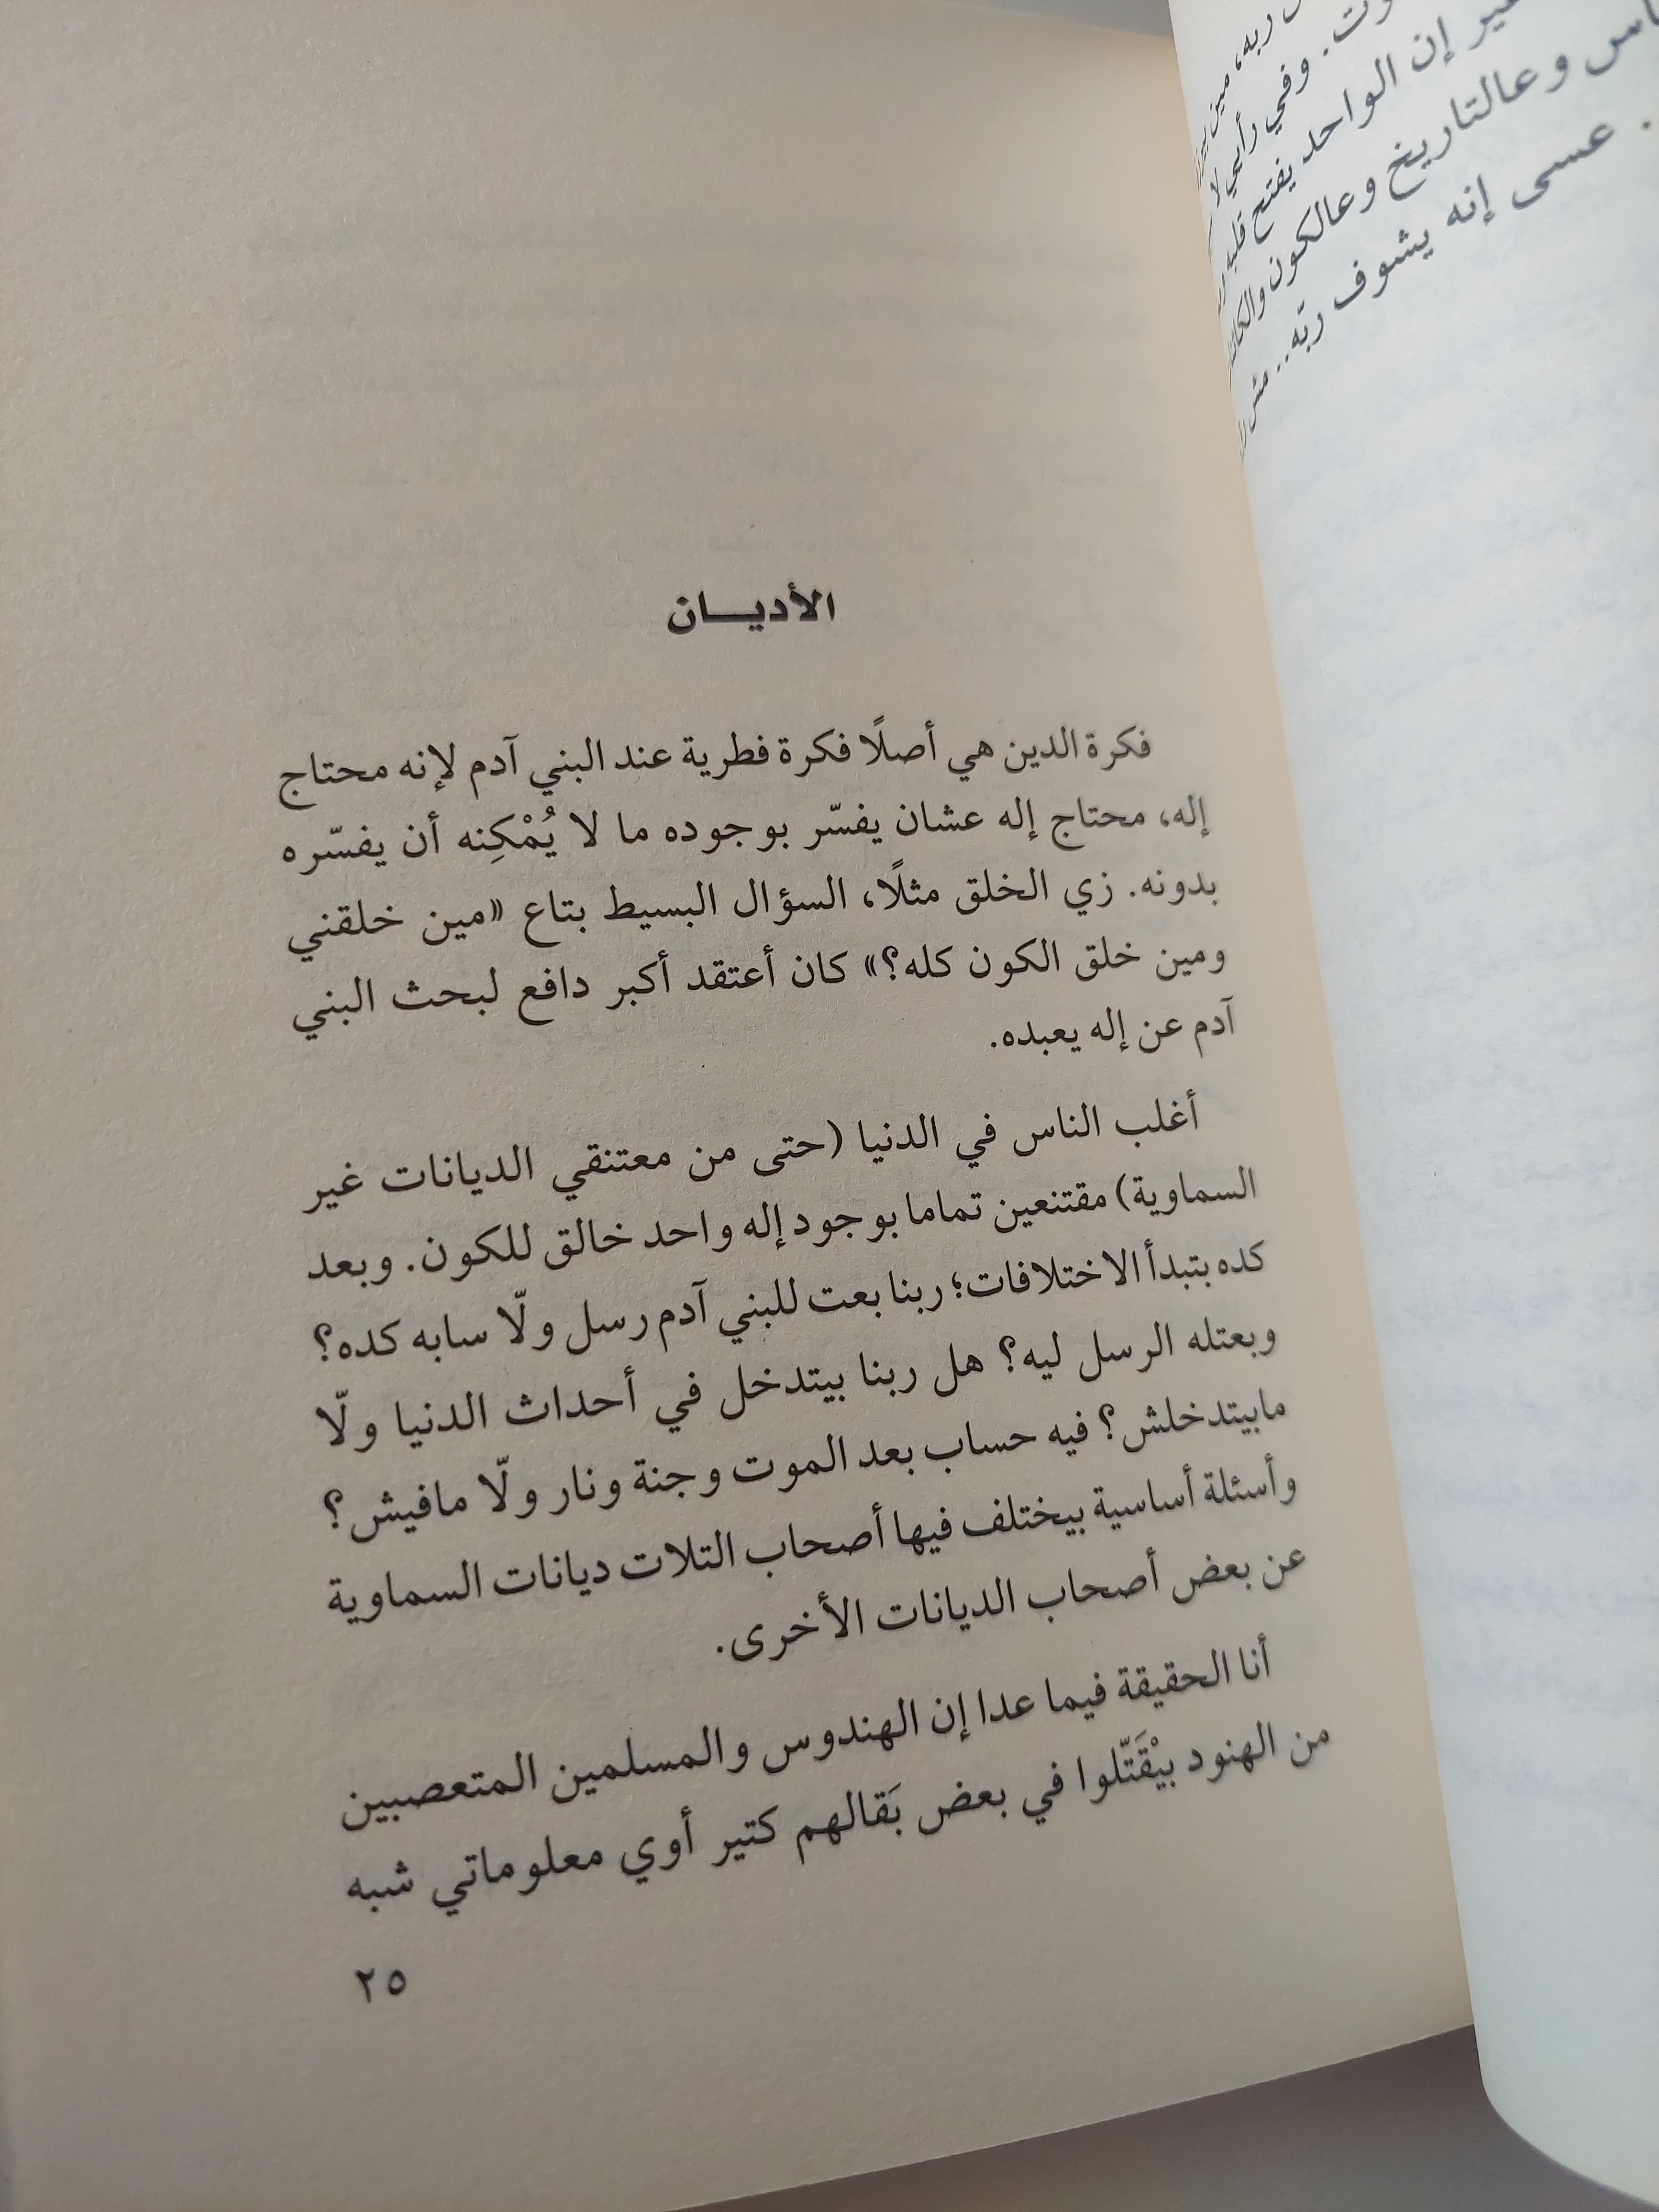 ربه، مين
وت. وفي رأيي لا
غير إن الواحد يفتح قلبه
وعالتاريخ وعالكون
. عسى إنه يشوف ربّه.. مش
الأديـــان
فكرة الدين هي أصلًا فكرة فطرية عند البني آدم لإنه محتاج
إله، محتاج إله عشان يفسّر بوجوده ما لا يُمْكِنه أن يفسّره
بدونه. زي الخلق مثلًا، السؤال البسيط بتاع «مين خلقني
ومين خلق الكون كله؟» كان أعتقد أكبر دافع لبحث البني
آدم عن إله يعبده.
أغلب الناس في الدنيا (حتى من معتنقي الديانات غير
السماوية) مقتنعين تماما بوجود إله واحد خالق للكون. وبعد
كده بتبدأ الاختلافات؛ ربنا بعت للبني آدم رسل ولّا سابه كده؟
وبعتله الرسل ليه؟ هل ربنا بيتدخل في أحداث الدنيا ولّا
مابيتدخلش؟ فيه حساب بعد الموت وجنة ونار ولّا مافيش؟
وأسئلة أساسية بيختلف فيها أصحاب التلات ديانات السماوية
عن بعض أصحاب الديانات الأخرى.
أنا الحقيقة فيما عدا إن الهندوس والمسلمين المتعصبين
من الهنود بيْقَتّلوا في بعض بَقالهم كتير أوي معلوماتي شبه
٢٥